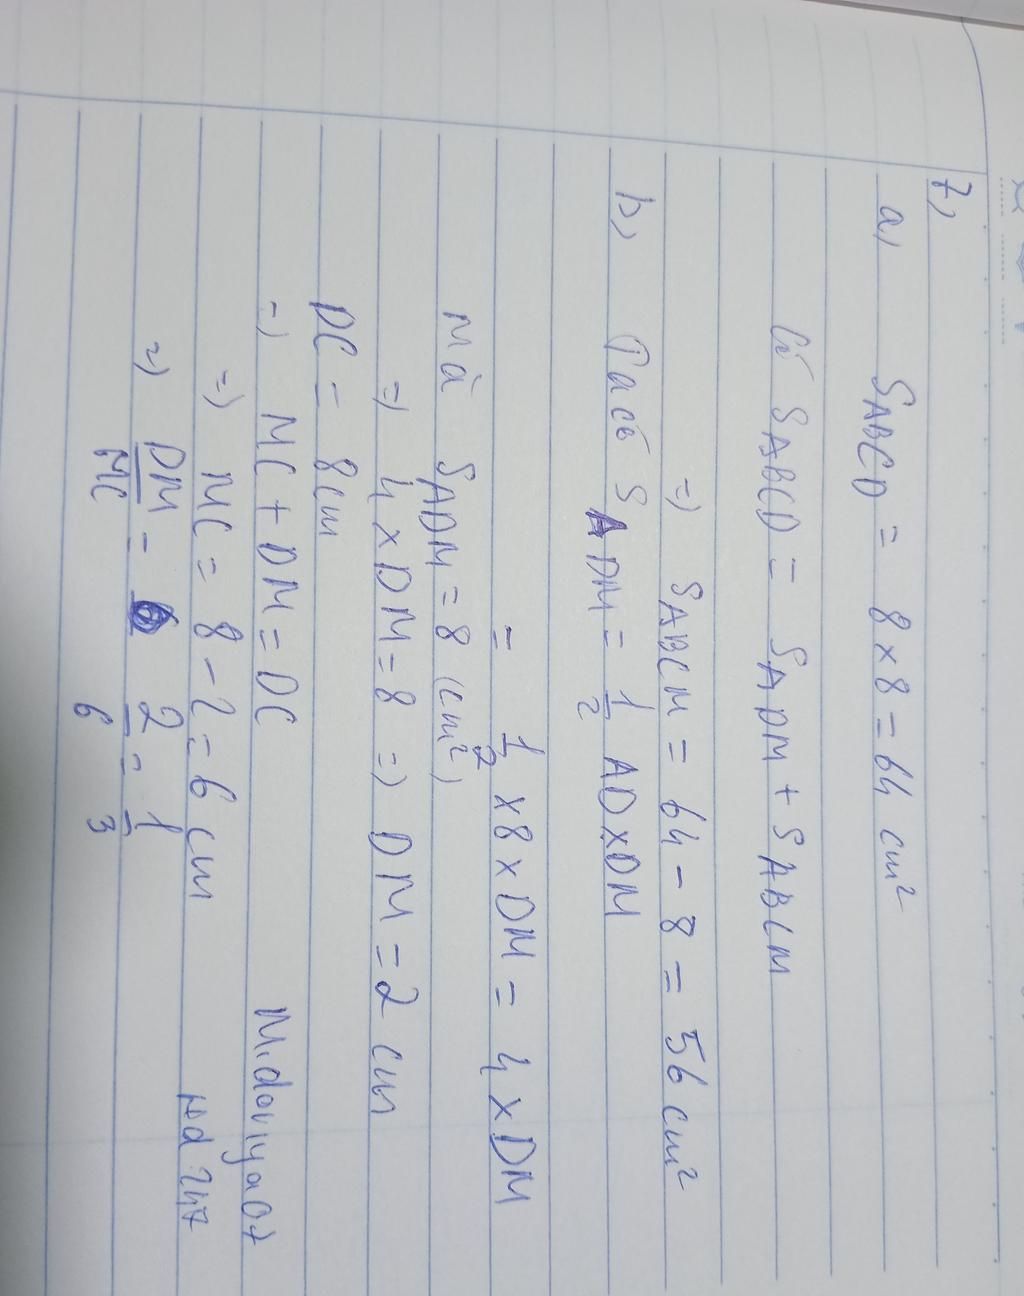 7,
a, SABCD = 8 x 8 = 64 cm²
Có SABCD = SADM + SABCM
=) SABCM = 64 - 8 = 56 cm²
b, Ta có S ADM = 1/2 AD x DM
= 1/2 x 8 x DM = 4 x DM
Mà SADM = 8 (cm²)
=) 4 x DM = 8 =) DM = 2 cm
DC = 8cm
=) MC + DM = DC
=) MC = 8 - 2 = 6 cm
=) DM/MC = 2/6 = 1/3